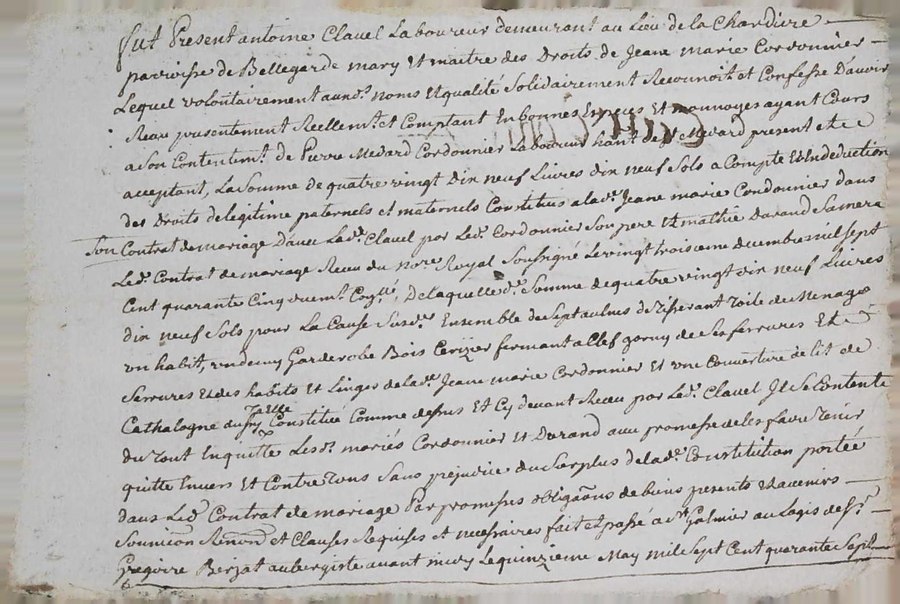 fut Present antoine Clavel Laboureur demeurant au Lieu de la Chardivre
parroisse de Bellegarde mary et maitre des Droits de Jeane marie Cordonnier
Lequel volontairement auxd. noms et qualité Solidairement Reconnoit et Confesse D'avoir
Receu presentement Reellemt. et Comptant En bonnes Especes et monnoyes ayant Cours
a Son Contentemt. de Pierre Medard Cordonnier Laboureur hant. de St Medard present et
acceptant, La Somme de quatre vingt Dix neuf Livres dix neuf Sols a Compte et In deduction
des Droits de legitime paternels et maternels Constitués a lad. Jeane marie Condonnier dans
Son Contrat de mariage D'avec Led. Clavel par Led. Cordonnier Son pere et mathie Durand Sa mere
Led. Contrat de mariage Receu du nore. Royal Soussigné Le vingt troisieme decembre mil sept
Cent quarante Cinq duemt. Coyllé, De laquelle d. Somme de quatre vingt dix neuf Livres
dix neuf Sols pour La Cause Susd. Ensemble de Sept aulnes de Toile de Menage
un habit, un demy Garderobe Bois Cerizer fermant a Clef garny de Ses ferrures Et
Serrures et des habits et Linges de lad. Jeane marie Cordonnier et une Couverture de lit de
Cathalogne du fry Taelle Constitué Comme dessus et Cy devant Receu par Led. Clavel Il Se Contente
du Tout Enquitte Lesd. mariés Cordonnier et Durand avec promesse de les faire Tenir
quitte Envers et Contre Tous Sans prejudice du Surplus de lad. Constitution portée
dans Led. Contrat de mariage Par promesses obligaons de biens presents et avenirs
Soumicon Renoncd et Clauses Requises et necessaires fait et passé a St Galmier au Logis de Sr.
Gregoire Berzat aubergiste avant midy Le quinzieme May mil Sept Cent quarante Sept